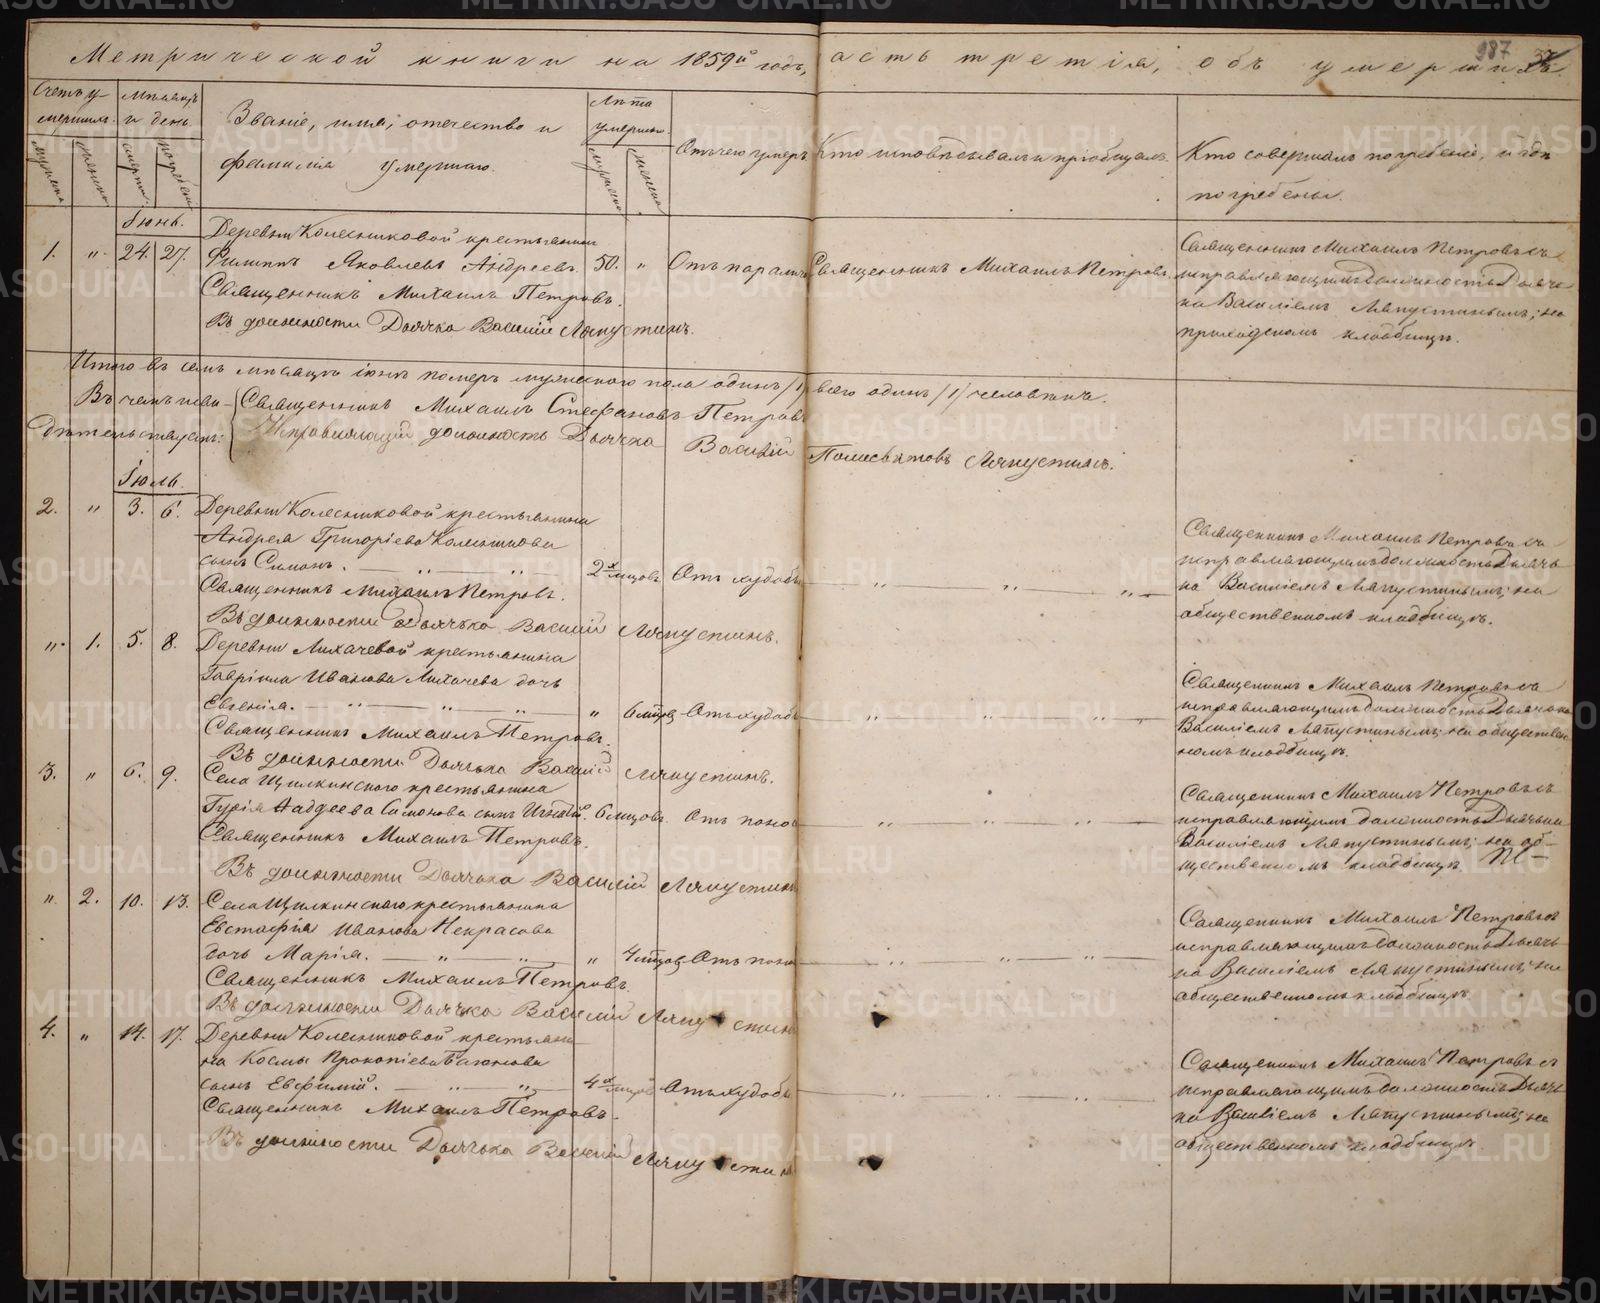 Метрической книги на 1859й годъ, часть третія, объ умершихъ.
987
Счетъ умершихъ.
Мѣсяцъ и день.
Званіе, имя, отечество и фамилія умершаго.
Лѣта умершаго.
Отъ чего умеръ
Кто исповѣдывалъ и пріобщалъ.
Кто совершалъ погребеніе, и гдѣ погребены.
мужеска
женска
смерти
погребен.
мужеска
женска
Іюнь.
1. " 24. 27. Деревни Колесниковой крестьянинъ
Филиппъ Яковлевъ Андреевъ. 50. " Отъ паралич Священникъ Михаилъ Петровъ.
Священникъ Михаилъ Петровъ.
Въ должности Дьячка Василій Ляпустинъ.
Священникъ Михаилъ Петровъ съ
исправляющимъ должность Дьячка
Василіемъ Ляпустинымъ; на
приходскомъ кладбищѣ.
Итого въ семъ мѣсяцѣ іюнѣ померъ мужескаго пола одинъ /1/ всего одинъ /1/ человѣкъ.
Въ чемъ и сви-
дѣтельствуютъ:
Священникъ Михаилъ Стефановъ Петровъ
Исправляющій должность Дьячка Василій Полиевктовъ Ляпустинъ.
Іюль.
2. " 3. 6. Деревни Колесниковой крестьянина
Андрея Григоріева Колесникова
сынъ Симонъ. 2х мѣсцовъ Отъ худобы
Священникъ Михаилъ Петровъ.
Въ должности Дьячька Василій Ляпустинъ.
Священникъ Михаилъ Петровъ съ
исправляющимъ должность Дьячь-
ка Василіемъ Ляпустинымъ; на
общественномъ кладбищѣ.
" 1. 5. 8. Деревни Лихачевой крестьянина
Гавріила Иванова Лихачева дочь
Евгенія. " 6 мѣсцов Отъ худобы
Священникъ Михаилъ Петровъ.
Въ должности Дьячька Василій Ляпустинъ.
Священникъ Михаилъ Петровъ съ
исправляющимъ должность Дьячька
Василіемъ Ляпустинымъ; на обществен-
номъ кладбищѣ.
3. " 6. 9. Села Щилкинскаго крестьянина
Гурія Фаддеева Симонова сынъ Игнатій. 6 мѣсцовъ Отъ поно
Священникъ Михаилъ Петровъ.
Въ должности Дьячька Василій Ляпустинъ
Священникъ Михаилъ Петровъ съ
исправляющимъ должность Дьячька
Василіемъ Ляпустинымъ; на об-
щественномъ кладбищѣ.
" 2. 10. 13. Села Щилкинскаго крестьянина
Евстафія Иванова Некрасова
дочь Марія. " 4 мѣсцов Отъ поно
Священникъ Михаилъ Петровъ.
Въ должности Дьячка Василій Ляпустинъ
Священникъ Михаилъ Петровъ съ
исправляющимъ должность Дьячь-
ка Василіемъ Ляпустинымъ; на
общественномъ кладбищѣ.
4. " 14. 17. Деревни Колесниковой крестьяни-
на Космы Прокопіева
сынъ Евфимій. 4х мѣсцов Отъ худобы
Священникъ Михаилъ Петровъ.
Въ должности Дьячька Василій Ляпустинъ
Священникъ Михаилъ Петровъ съ
исправляющимъ должность Дьячь-
ка Василіемъ Ляпустинымъ; на
общественномъ кладбищѣ
METRIKI.GASO-URAL.RU